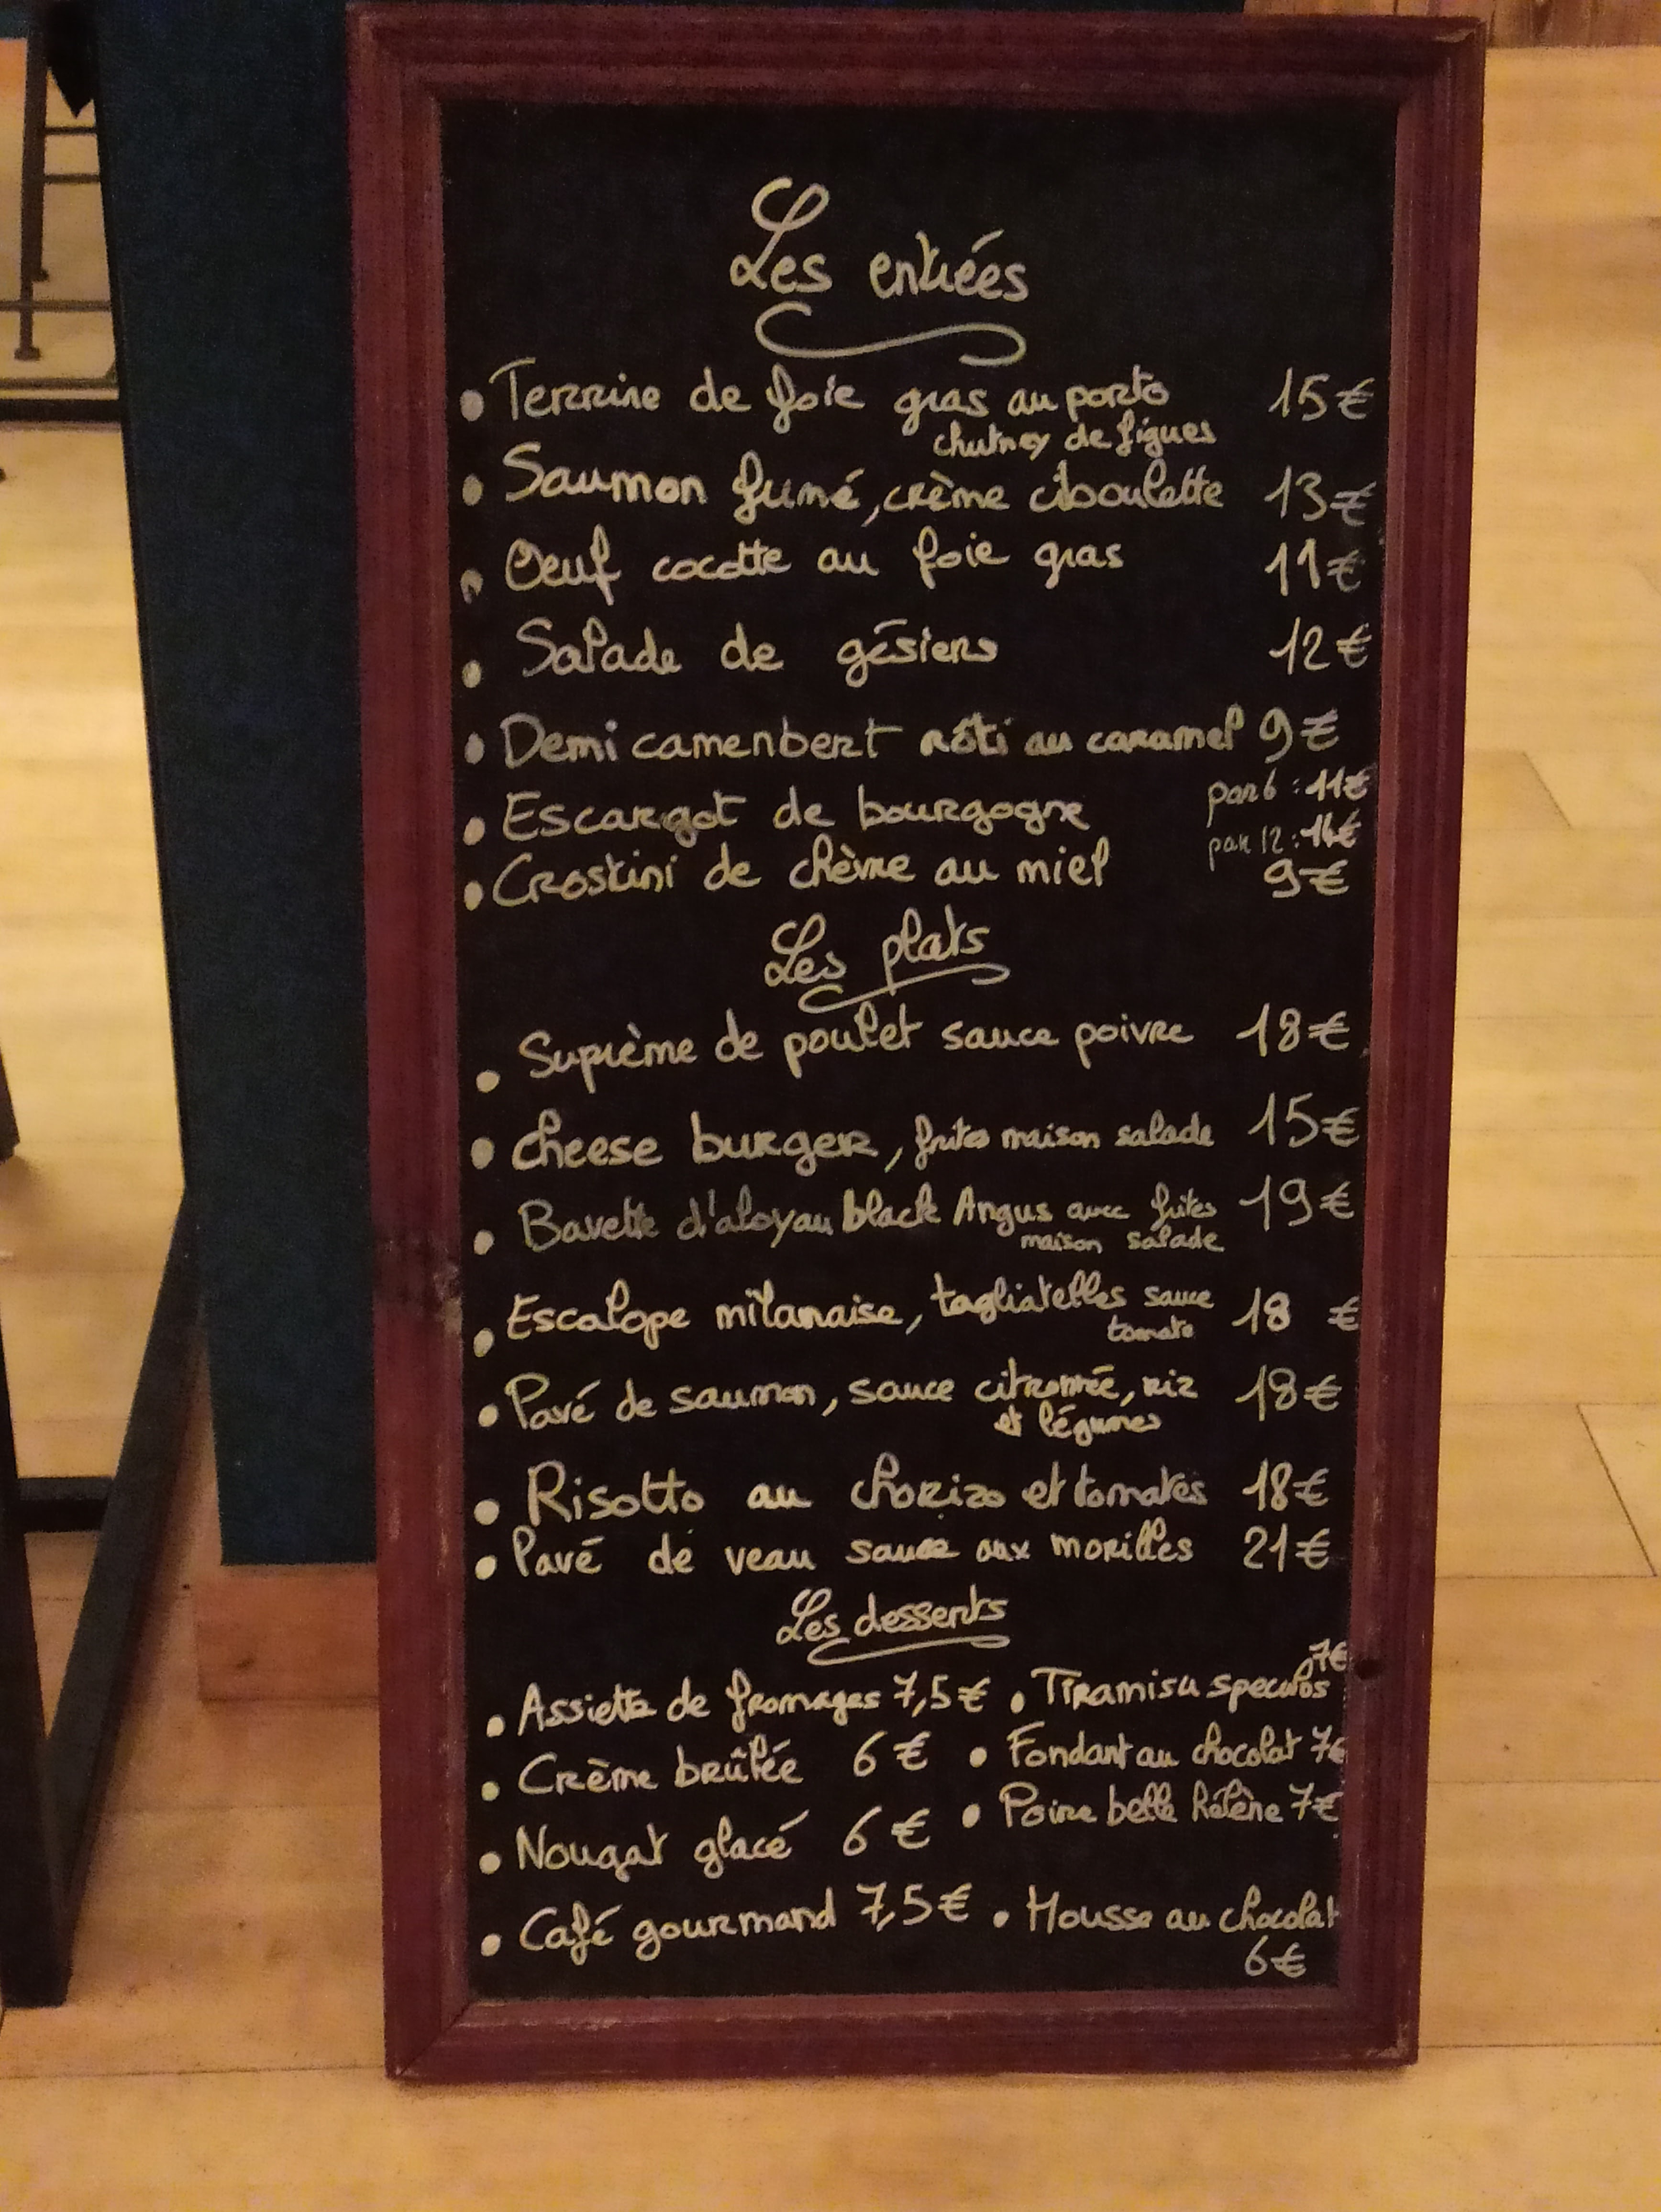 Les entrées
• Terrine de foie gras au porto 15€
chutney de figues
• Saumon fumé, crème ciboulette 13€
• Oeuf cocotte au foie gras 11€
• Salade de gésiers 12€
• Demi camenbert rôti au caramel 9€
• Escargot de bourgogne par 6 : 11€
par 12 :
• Crostini de chèvre au miel 9€
Les plats
• Suprème de poulet sauce poivre 18€
• cheese burger, frites maison salade 15€
• Bavette d'aloyau black Angus avec frites 19€
maison salade
• Escalope milanaise, tagliatelles sauce 18 €
tomate
• Pavé de saumon, sauce citronnée, riz 18€
et légumes
• Risotto au chorizo et tomates 18€
• Pavé de veau sauce aux morilles 21€
Les desserts
• Assiette de fromages 7,5€ • Tiramisu speculos 7€
• Crème brûlée 6€ • Fondant au chocolat 7€
• Nougat glacé 6€ • Poire belle hélène 7€
• Café gourmand 7,5€ • Mousse au chocolat
6€